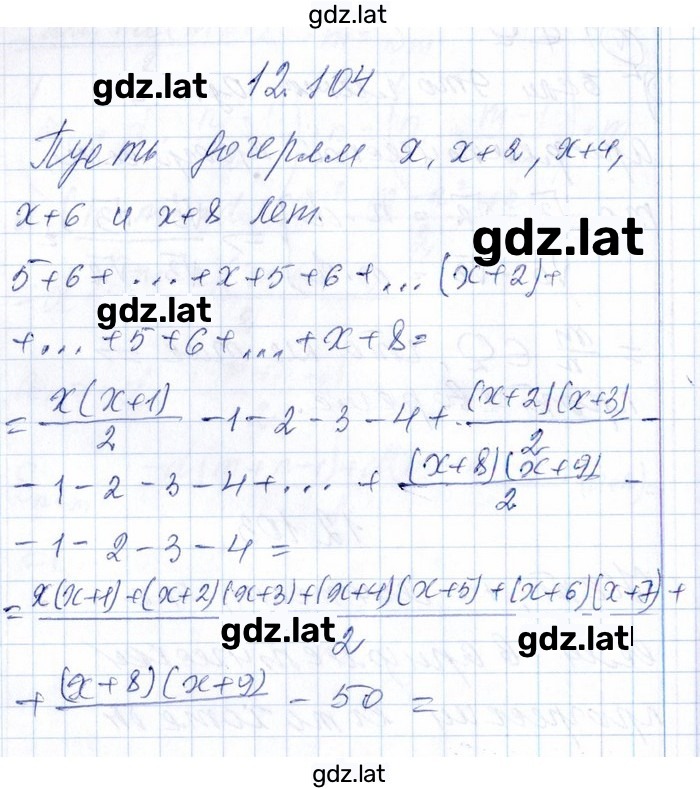 gdz.lat
gdz.lat 12.104
Пусть дочерям x, x+2, x+4,
x+6 и x+8 лет.
gdz.lat
5+6+...+x+5+6+...(x+2)+
gdz.lat
+...+5+6+...+x+8=
= x(x+1)/2 -1-2-3-4+ (x+2)(x+3)/2 -
-1-2-3-4+...+ (x+8)(x+9)/2 -
-1-2-3-4=
= x(x+1)+(x+2)(x+3)+(x+4)(x+5)+(x+6)(x+7)+ / 2
gdz.lat gdz.lat
+ (x+8)(x+9) - 50 =
gdz.lat